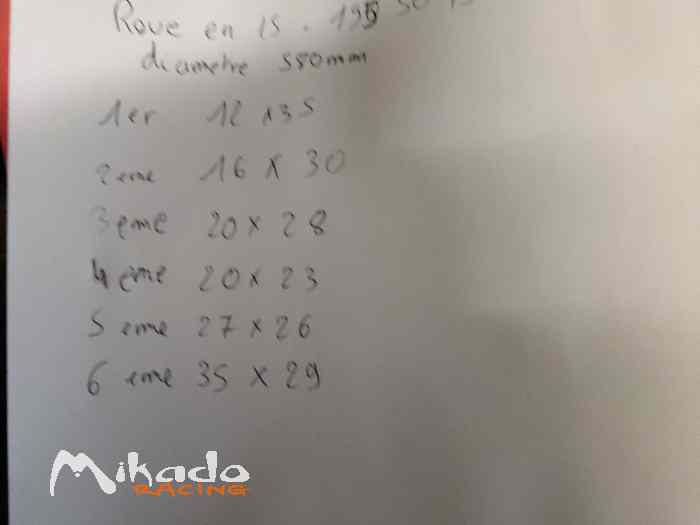 Roue en 15 . 195 50 15
diametre 550mm
1er 12 x35
2eme 16 x 30
3eme 20 x 28
4eme 20 x 23
5eme 27 x 26
6eme 35 x 29
Mikado
RACING